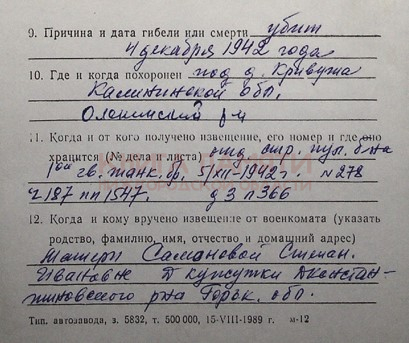 9. Причина и дата гибели или смерти убит
4 декабря 1942 года
10. Где и когда похоронен под д. Кривуша
Калининской обл.
Оленинский р-н
11. Когда и от кого получено извещение, его номер и где оно
хранится (№ дела и листа) отд. стр. пул. б-на
1ой гв. танк. бр. 5/XII-1942г. № 278
ч 187 пп 1547. д 3 л 366
12. Когда и кому вручено извещение от военкомата (указать
родство, фамилию, имя, отчество и домашний адрес)
Матери Самановой Степан.
Ивановне Д Константиновского
р-на Горьк. обл.
Тип. автозавода, з. 5832, т. 500 000, 15-VIII-1989 г. м-12